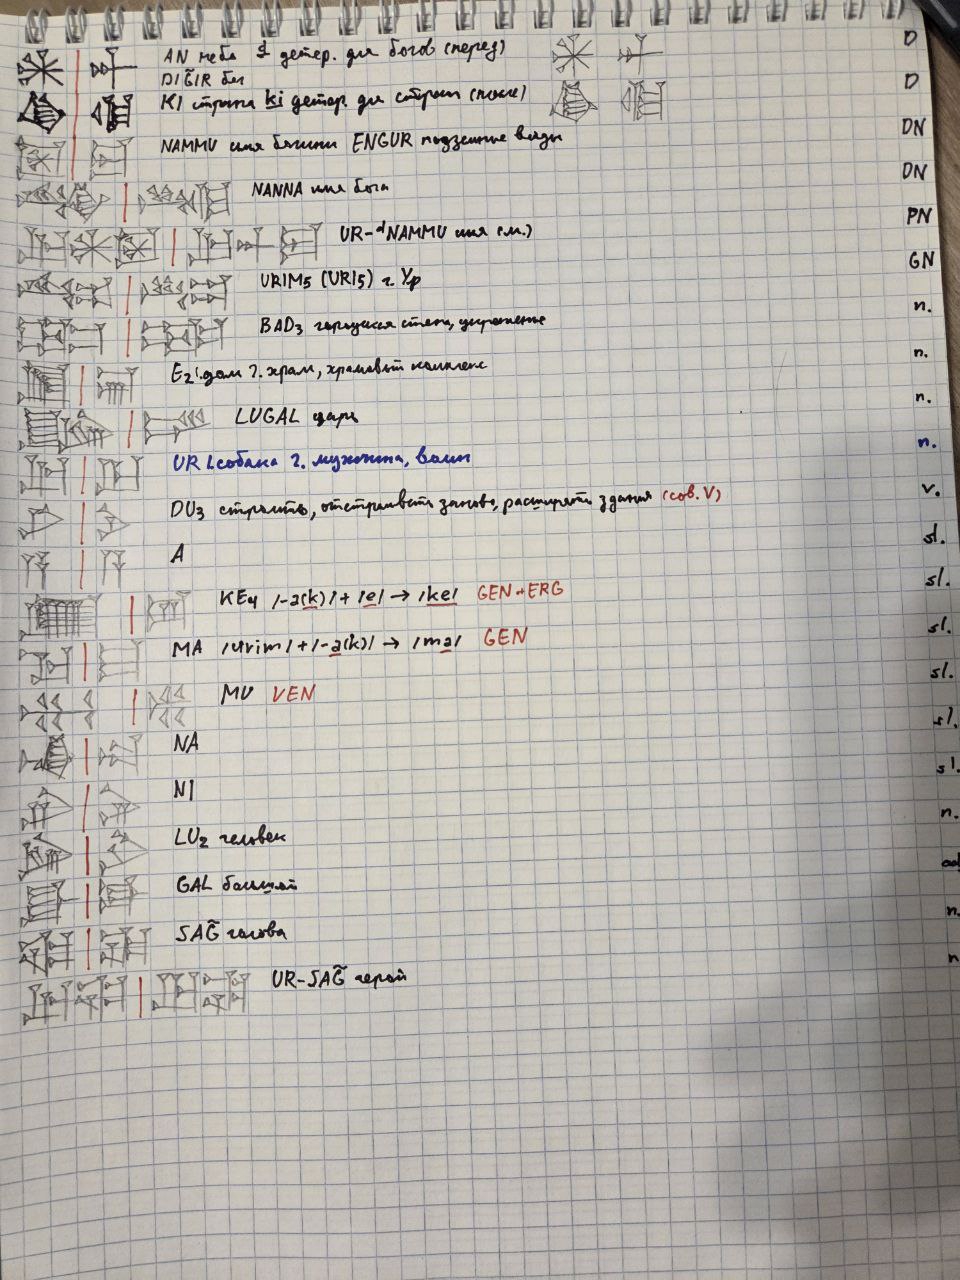 AN небо d детер. для богов (перед) D
DIG̃IR бог
KI страна ki детер. для стран (после) D
NAMMU имя богини ENGUR подземные воды DN
NANNA имя бога DN
UR-dNAMMU имя (м.) PN
URIM5 (URI5) г. Ур GN
BAD3 городская стена, укрепление n.
E2 1. дом 2. храм, храмовый комплекс n.
LUGAL царь n.
UR 1. собака 2. мужчина, воин n.
DU3 строить, отстраивать заново, расширять здания (сов. V) v.
A sl.
KE4 /-a(k)/ + /e/ → /ke/ GEN+ERG sl.
MA /urim/ + /-a(k)/ → /ma/ GEN sl.
MU VEN sl.
NA sl.
NI sl.
LU2 человек n.
GAL большой
SAG̃ голова n.
UR-SAG̃ герой n